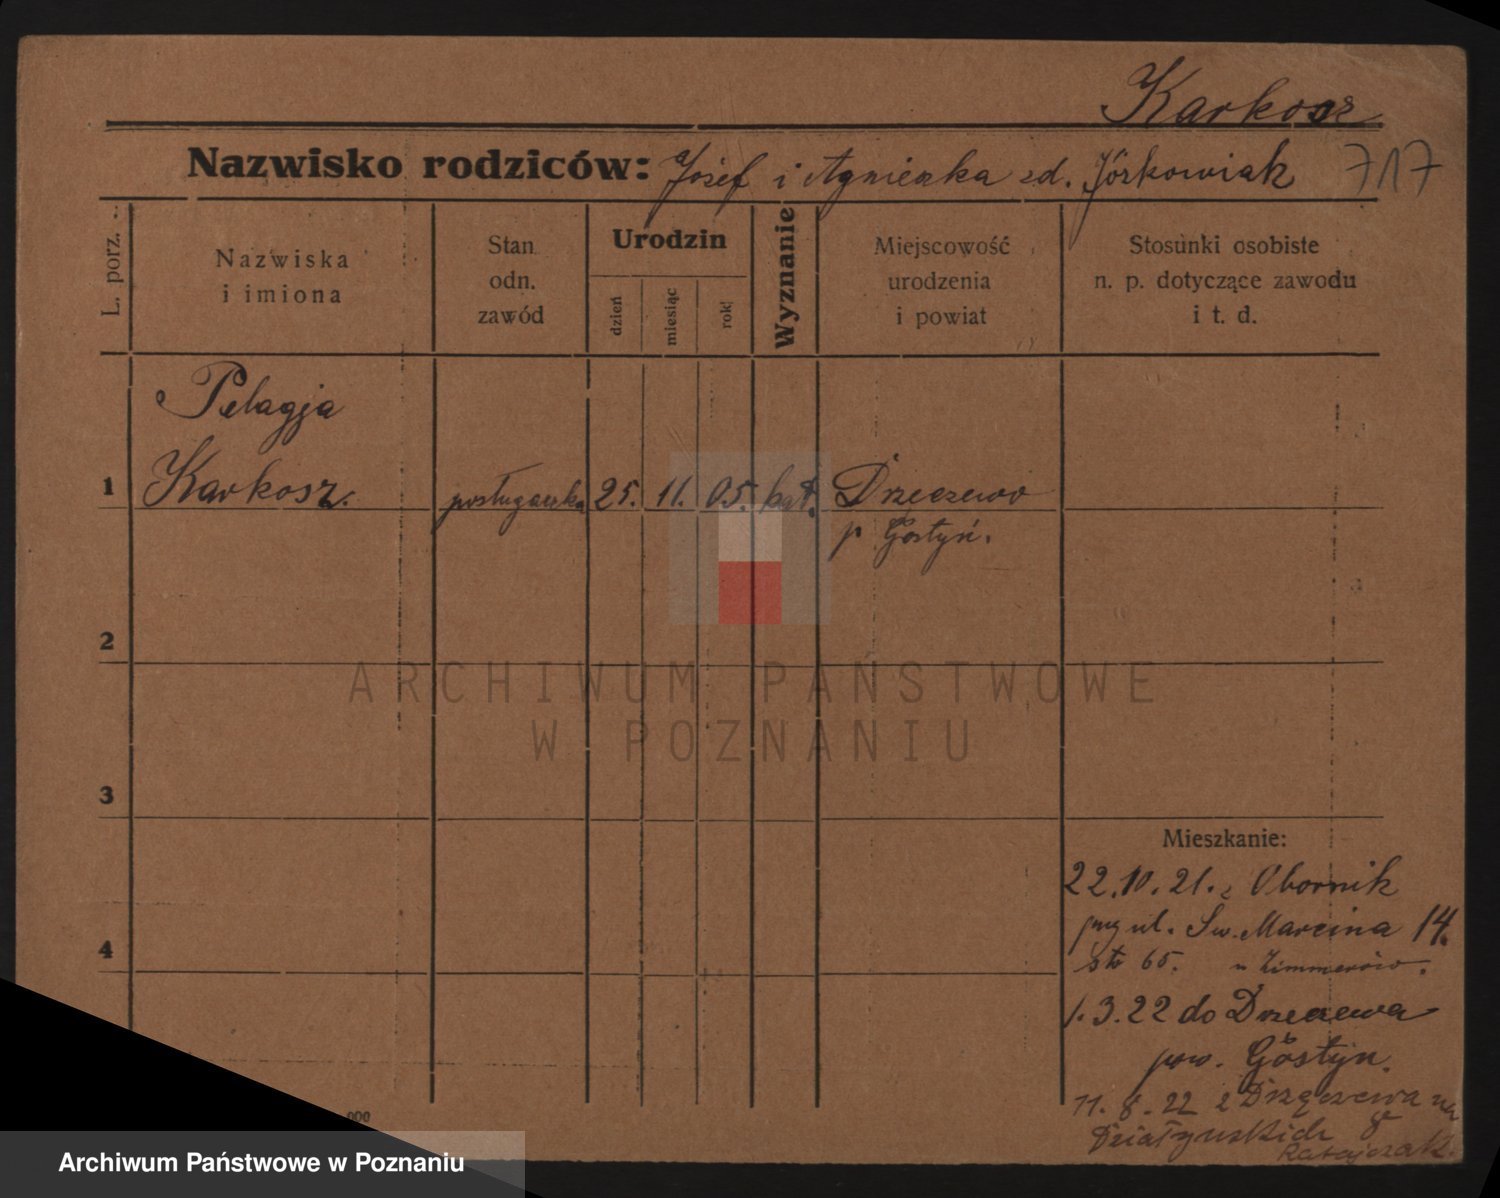 Karkosz
Nazwisko rodziców: Józef i Agnieszka zd. Jórkowiak 717
L. porz.
Nazwiska
i imiona
Stan
odn.
zawód
Urodzin
dzień
miesiąc
rok
Wyznanie
Miejscowość
urodzenia
i powiat
Stosunki osobiste
n. p. dotyczące zawodu
i t. d.
Pelagja
1 Karkosz. posługaczka 25. 11. 05. kat. Drzęczewo
p Gostyń.
2
ARCHIWUM PAŃSTWOWE
W POZNANIU
3
Mieszkanie:
22.10.21. z Obornik
przy ul. Św. Marcina 14.
4
65. u Zimmerów.
1.3.22 do Drzęczewa
pow. Gostyn.
11. 8. 22 z Drzęczewa na
Działyńskich 8
Ratajczak.
000
Archiwum Państwowe w Poznaniu